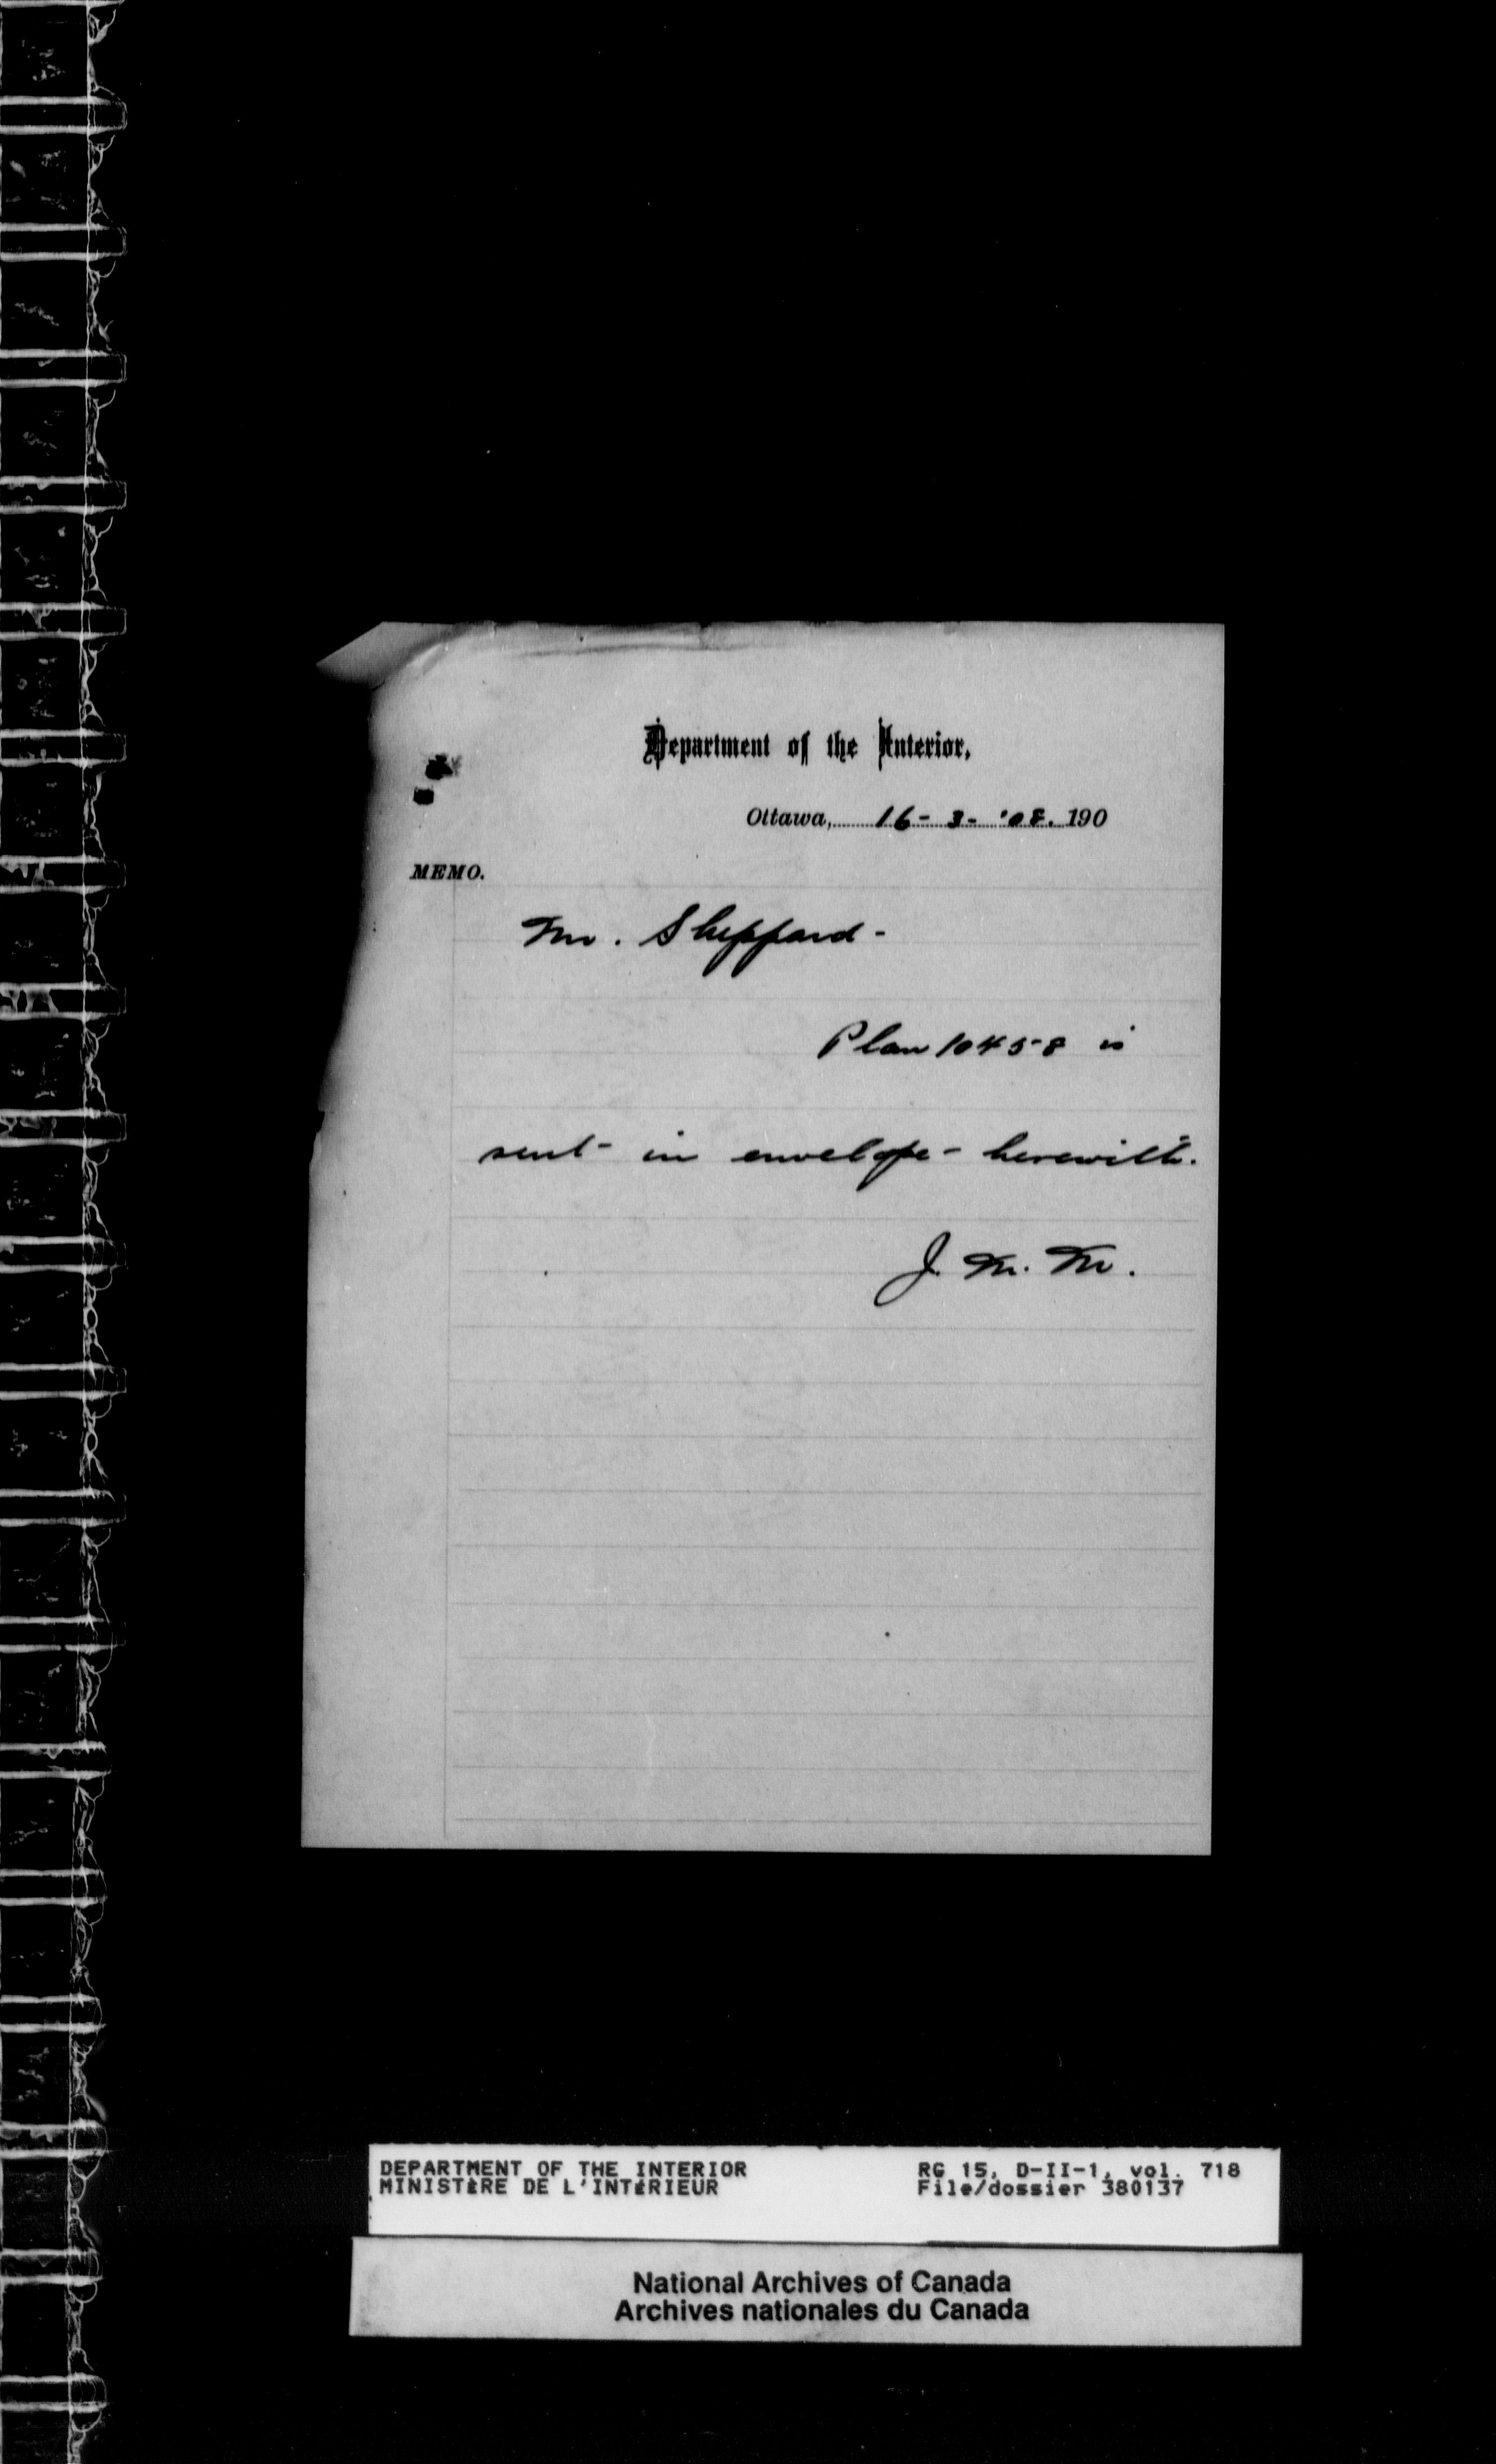 Department of the Interior,
Ottawa, 16 - 3 - '08. 190
MEMO.
Mr. Sheppard -
Plan 10458 is
sent in envelope - herewith.
J. M. M.
DEPARTMENT OF THE INTERIOR
MINISTÈRE DE L'INTÉRIEUR
RG 15, D-II-1, vol. 718
File/dossier 380137
National Archives of Canada
Archives nationales du Canada